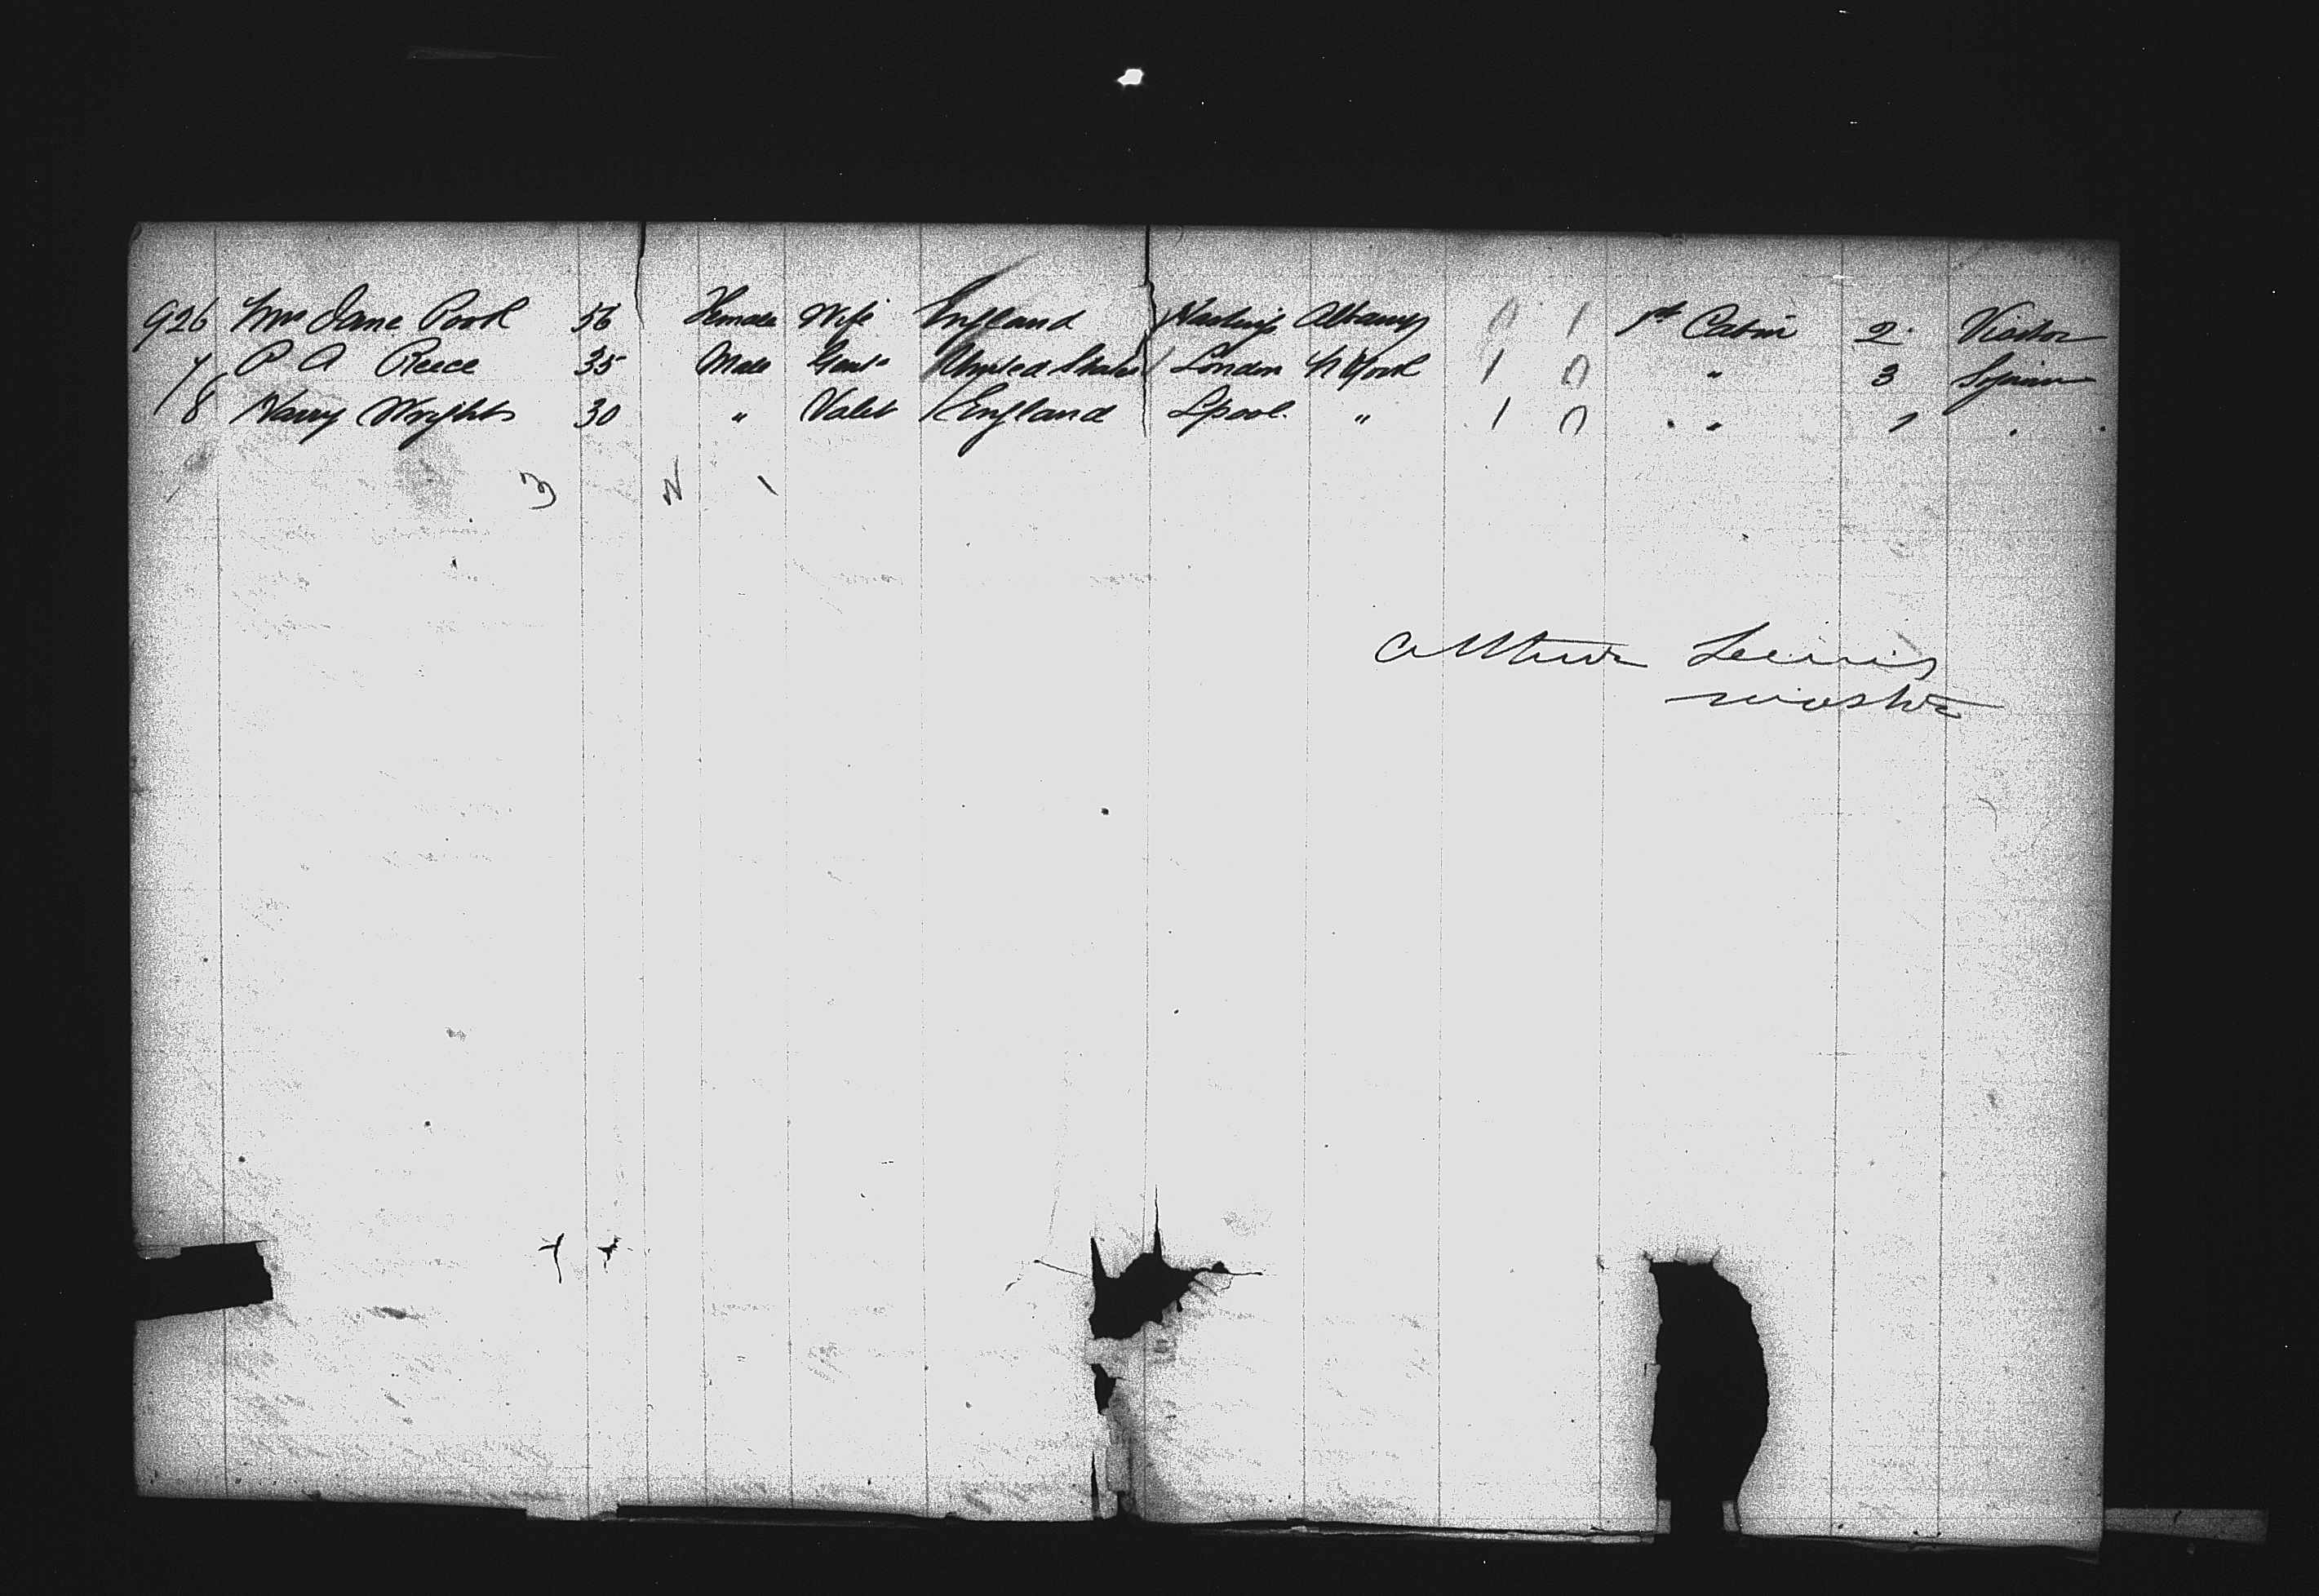 926 Mrs Jane Pook 56 Female Wife England Hastings Albany 0 1 1st Cabin 2 Visitor
7 P A Reece 35 Male Gent United States London N York 1 0 " 3 Sojourn
8 Harry Wright 30 " Valet England Lpool. " 1 0 " "
3 2 1
Lewis
master